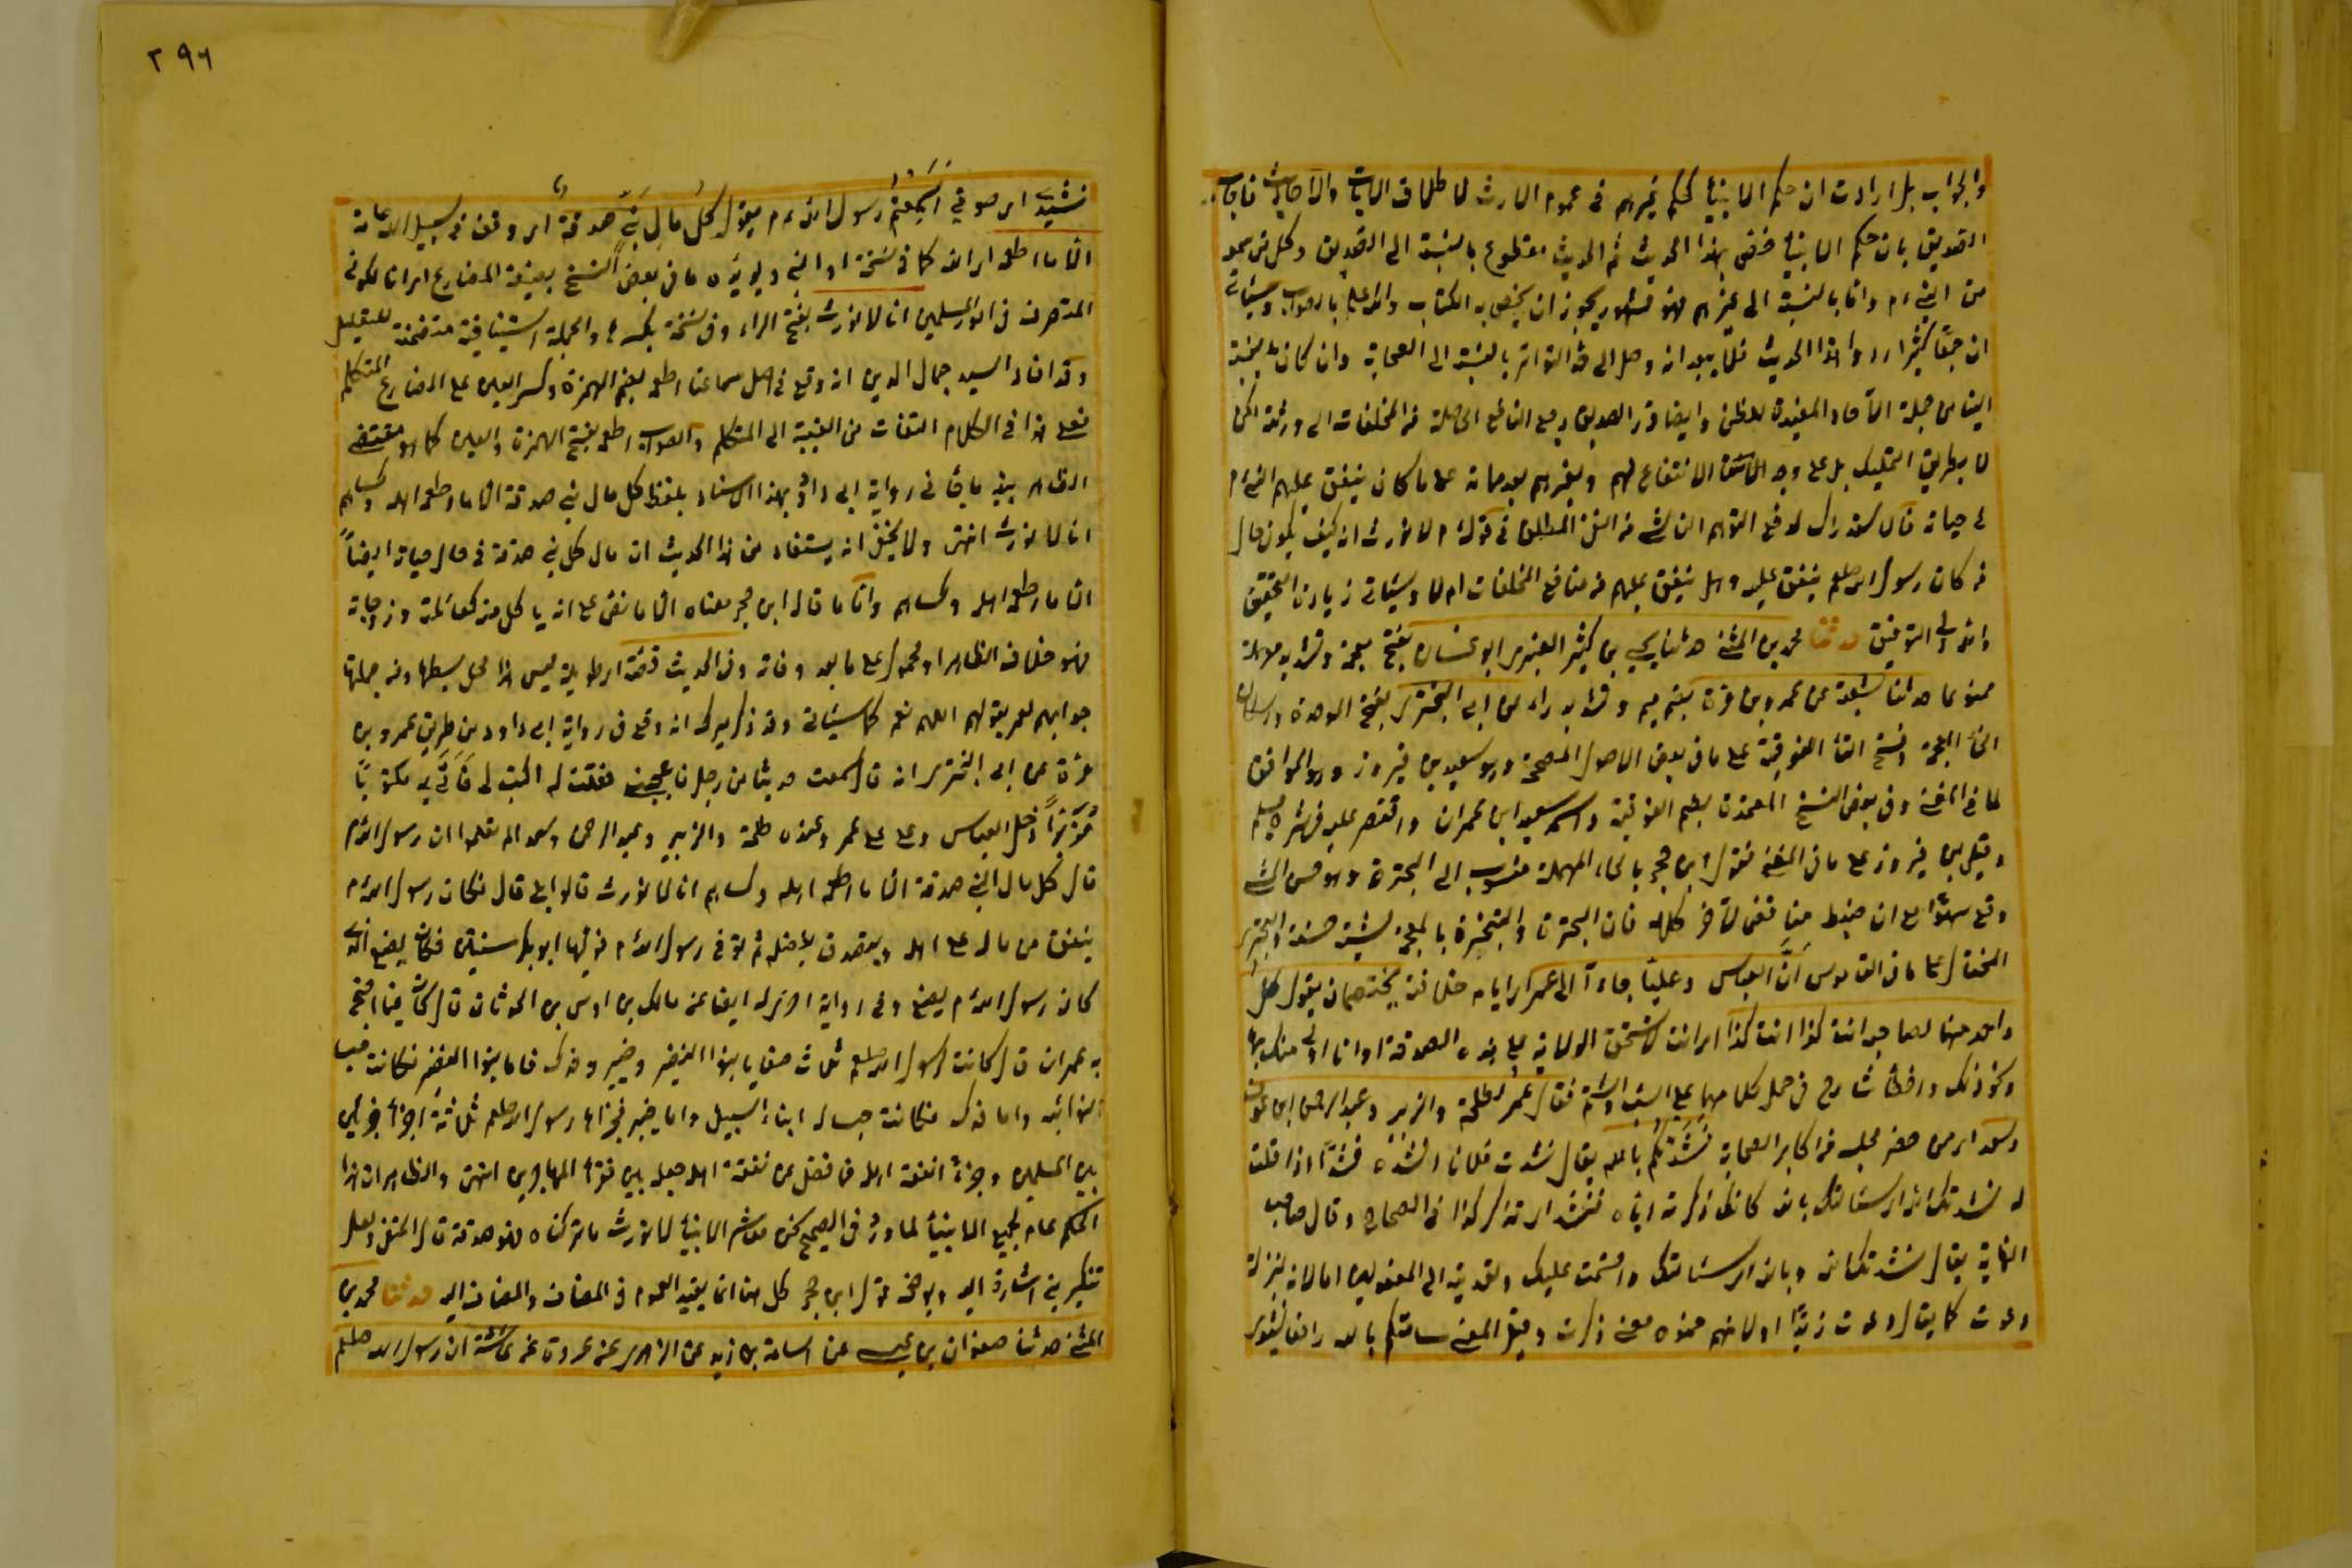 والجواب بل ارادت ان حكم الانبياء كحكم غيرهم في عموم الارث لاطلاق الايات والاحاديث فاجاب
الصديق بان حكم الانبياء خص بهذا الحديث ثم الحديث مقطوع بالنسبة الى الصديق وكل من سمعه
من النبي ءم واما بالنسبة الى غيرهم فهو مشهور يجوز ان يخص به الكتاب والله اعلم بالصواب وسيأتي
ان جمعا كثيرا رووا هذا الحديث فلا يبعد انه وصل الى حد التواتر بالنسبة الى الصحابة وان كان بالنسبة
الينا من جملة الآحاد المفيدة للظن وايضا قرر الصديق رجع المنافع الحاصلة من المخلفات الى ورثته لكن
لا بطريق التمليك بل على وجه الانتفاع لهم ولغيرهم بعد مماته على ما كان ينفق عليهم النبي ءم
في حياته فالاستدراك لدفع التوهم الناشئ من النفي المطلق في قوله ءم لا نورث انه كيف يكون حال
من كان رسول الله صلعم ينفق عليه وهل ينفق عليهم من منافع المخلفات ام لا وسيأتي زيادة التحقيق
والله ولي التوفيق حدثنا محمد بن المثنى حدثنا يحيى بن كثير العنبري ابو غسان بفتح معجمة وتشديد مهملة
ممنوعا حدثنا شعبة عن عمرو بن مرة بضم ميم وتشديد راء عن ابي البختري بفتح الموحدة وسكون
الخاء المعجمة وفتح التاء الفوقية على ما في بعض الاصول المصححة وهو سعيد بن فيروز وهو الموافق
لما في المغني وفي بعض النسخ المعتمدة بضم الفوقية واسمه سعيد ابن عمران واقتصر عليه في شرح مسلم
وقيل بن فيروز على ما في المغني فقول ابن حجر بالحاء المهملة منسوب الى البحترة وهو حسن المشي
وقع سهوا مع ان ضبطه مناقض لآخر كلامه فان البحترة والتبختر بالمعجمة مشية حسنة والبختري
المختال على ما في القاموس اَنَّ العباس وعليا جاءآ الى عمر اي ايام خلافته يختصمان يقول كل
واحد منهما لصاحبه انت كذا انت كذا اي انت لا تستحق الولاية على هذه الصدقة او انا اولى منك بها
ونحو ذلك واخطأ شارح في حمل كلامهما على السب والشتم فقال عمر لطلحة والزبير وعبد الرحمن ابن عوف
وسعد اي من حضر مجلسه من اكابر الصحابة نَشَدْتُكُم بالله يقال نشدت فلانا انشده نشدًا اذا قلت
له نشدتك الله اي سئالتك بالله كانك ذكرته اياه فنشد اي تذكر كذا في الصحاح وقال صاحب
النهاية يقال نشدتك الله وبالله اي سئالتك واقسمت عليك وتعديته الى المفعولين اما لانه بمنزلة
دعوت كما يقال دعوت زيدًا او لانهم ضمنوه معنى ذكرت وقيل المعنى سئالتكم بالله رافعا نشيدي
٢٩٦
نشيدي اي صوتي اسمعتم رسول الله ءم يقول كل مال نبي صدقة اي وقف في سبيل الله عامة
الا ما اطعمه اي الله كما في نسخة او النبي ويؤيده ما في بعض النسخ بصيغة المضارع اي انا لكونه
المتصرف في امور المسلمين انا لا نورث بفتح الراء وفي نسخة بكسرها والجملة استينافية متضمنة للتعليل
وقد افاد السيد جمال الدين انه وقع في اصل سماعنا اطعمه بضم الهمزة وكسر العين على المضارع المتكلم
فعلى هذا في الكلام التفات من الغيبة الى المتكلم والصواب اطعمه بفتح الهمزة والعين كما هو مقتضى
الظاهر بينه ما في رواية ابي داود بهذا الاسناد بلفظ كل مال نبي صدقة الا ما اطعمه اهله وكساهم
انا لا نورث انتهى ولا يخفى انه يستفاد من هذا الحديث ان مال كل نبي صدقة في حال حياته ايضاً
الا ما اطعمه اهله وكساهم واما ما قال ابن حجر معناه الا ما نص على انه يأكل منه كعائلته وزوجاته
فهو خلاف الظاهر او محمول على ما بعد وفاته وفي الحديث قصة اي طويلة ليس هذا محل بسطها ومن جملتها
جوابهم لعمر بقولهم اللهم نعم كما سيأتي وقد ذكر ميرك انه وقع في رواية ابي داود من طريق عمرو بن
مرة عن ابي البختري انه قال سمعت حديثا من رجل فاعجبني فقلت له اكتب لي فَأتى به مكتوباً
مُزَبَّرًا دخل العباس وعلي على عمر وعنده طلحة والزبير وعبد الرحمن وسعد الم تعلموا ان رسول الله ءم
قال كل مال النبي صدقة الا ما اطعمه اهله وكساهم انا لا نورث قالوا بلى قال فكان رسول الله ءم
ينفق من ماله على اهله ويتصدق بفضله ثم توفي رسول الله ءم فوليها ابو بكر سنتين فكان يصنع الذي
كان رسول الله ءم يصنع وفي رواية اخرى له ايضا عن مالك بن اوس بن الحدثان قال كان فيما احتج
به عمر ان قال كانت لرسول الله صلعم ثلاث صفايا بنوا النضير وخيبر وفدك فاما بنوا النضير فكانت حبسا
لنوائبه واما فدك فكانت حبسا لابناء السبيل واما خيبر فجزاها رسول الله صلعم ثلاثة اجزاء جزئين
بين المسلمين وجزءً لنفقة اهله فما فضل عن نفقة اهله جعله بين فقراء المهاجرين انتهى والظاهر ان هذا
الحكم عام لجميع الانبياء لما ورد في الصحيح نحن معاشر الانبياء لا نورث ما تركناه فهو صدقة قال الحنفي ولعل
تنكير نبي اشارة اليه ويوضحه قول ابن حجر كل هنا انما يفيد العموم في المضاف والمضاف اليه حدثنا محمد بن
المثنى حدثنا صفوان بن عيسى عن اسامة بن زيد عن الزهري عن عروة عن عائشة ان رسول الله صلعم